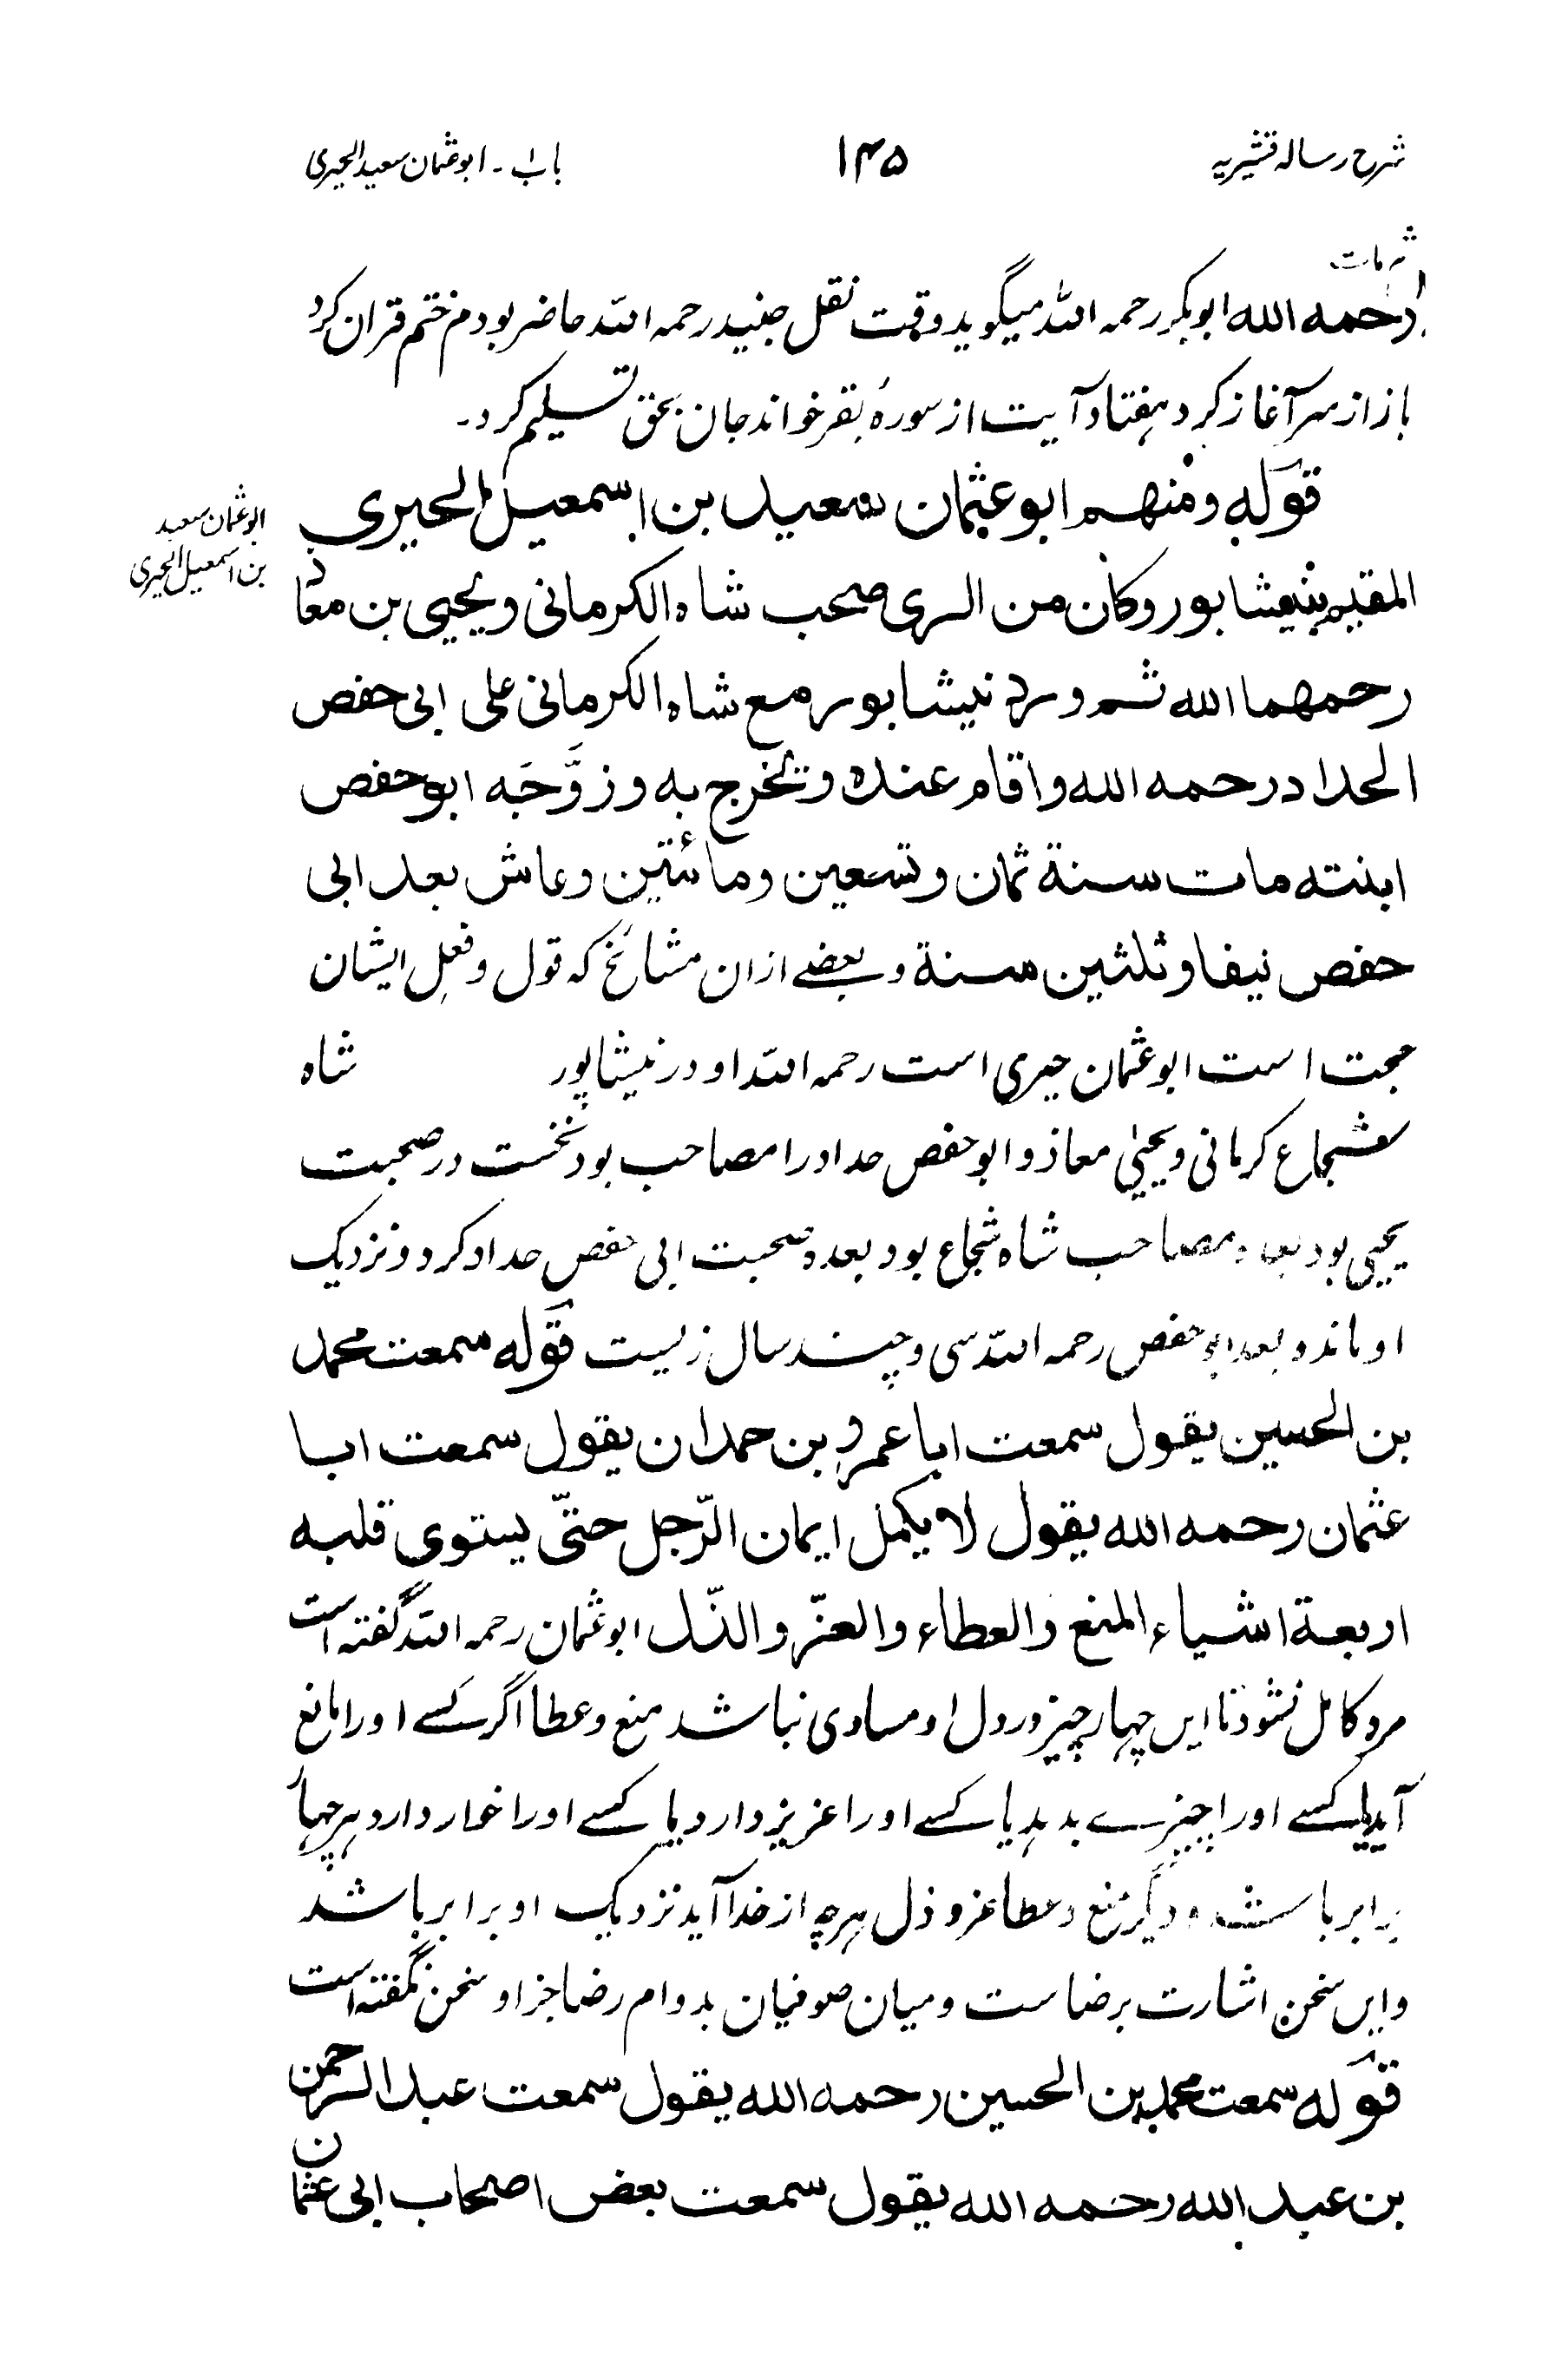 شرح رساله قشیریه
۱۴۵
باب ۱ ـ ابو عثمان سعید الحیری
ثم مات
رحمه الله ابوبکر رحمه الله میگوید وقت نقل جنید رحمه الله حاضر بودم ختم قران کرد
باز از سر آغاز کرد هفتاد آیت از سورهٔ بقر خواند جان بحق تسلیم کرد۔
قوله ومنهم ابو عثمان سعید بن اسمعیل الحیری
ابو عثمان سعید
بن اسمعیل الحیری
المقیم بنیشابور وکان من الری صحب شاه الکرمانی ویحیی بن معاذ
رحمهما الله ثم ورد نیشابور مع شاه الکرمانی علی ابی حفص
الحداد رحمه الله واقام عنده وتخرج به وزوَّجَه ابو حفص
ابنته مات سنة ثمان وتسعین ومائتین وعاش بعد ابی
حفص نیفا وثلثین سنة و بعضے ازان مشائخ که قول و فعل ایشان
حجت است ابو عثمان حیری است رحمه الله او در نیشاپور شاه
شجاع کرمانی و یحییٰ معاذ و ابو حفص حداد را مصاحب بود نخست در صحبت
یحیی بود بعده مصاحب شاه شجاع بود بعده صحبت ابی حفص حداد کرد و نزدیک
او ماند و بعد ابو حفص رحمه الله سی و چند سال زیست قوله سمعت محمد
بن الحسین یقول سمعت ابا عمرو بن حمدان یقول سمعت ابا
عثمان رحمه الله یقول لا یکمل ایمان الرّجل حتّی یستوی قلبه
اربعة اشیاء المنع والعطاء والعزّ والذّل ابو عثمان رحمه الله گفته است
مرد کامل نشود تا این چهار چیز در دل او مساوی نباشد منع و عطا اگر کسے او را مانع
آید یا کسے او را چیزے بدهد یا کسے او را عزیز دارد یا کسے او را خوار دارد هر چهار
برابر باشد و دیگر منع و عطا عز و ذل هرچه از خدا آید نزدیک او برابر باشد
و این سخن اشارت برضاست و میان صوفیان بدوام رضا جز او سخن نگفته است
قوله سمعت محمد بن الحسین رحمه الله یقول سمعت عبد الرحمن
بن عبد الله رحمه الله یقول سمعت بعض اصحاب ابی عثمان